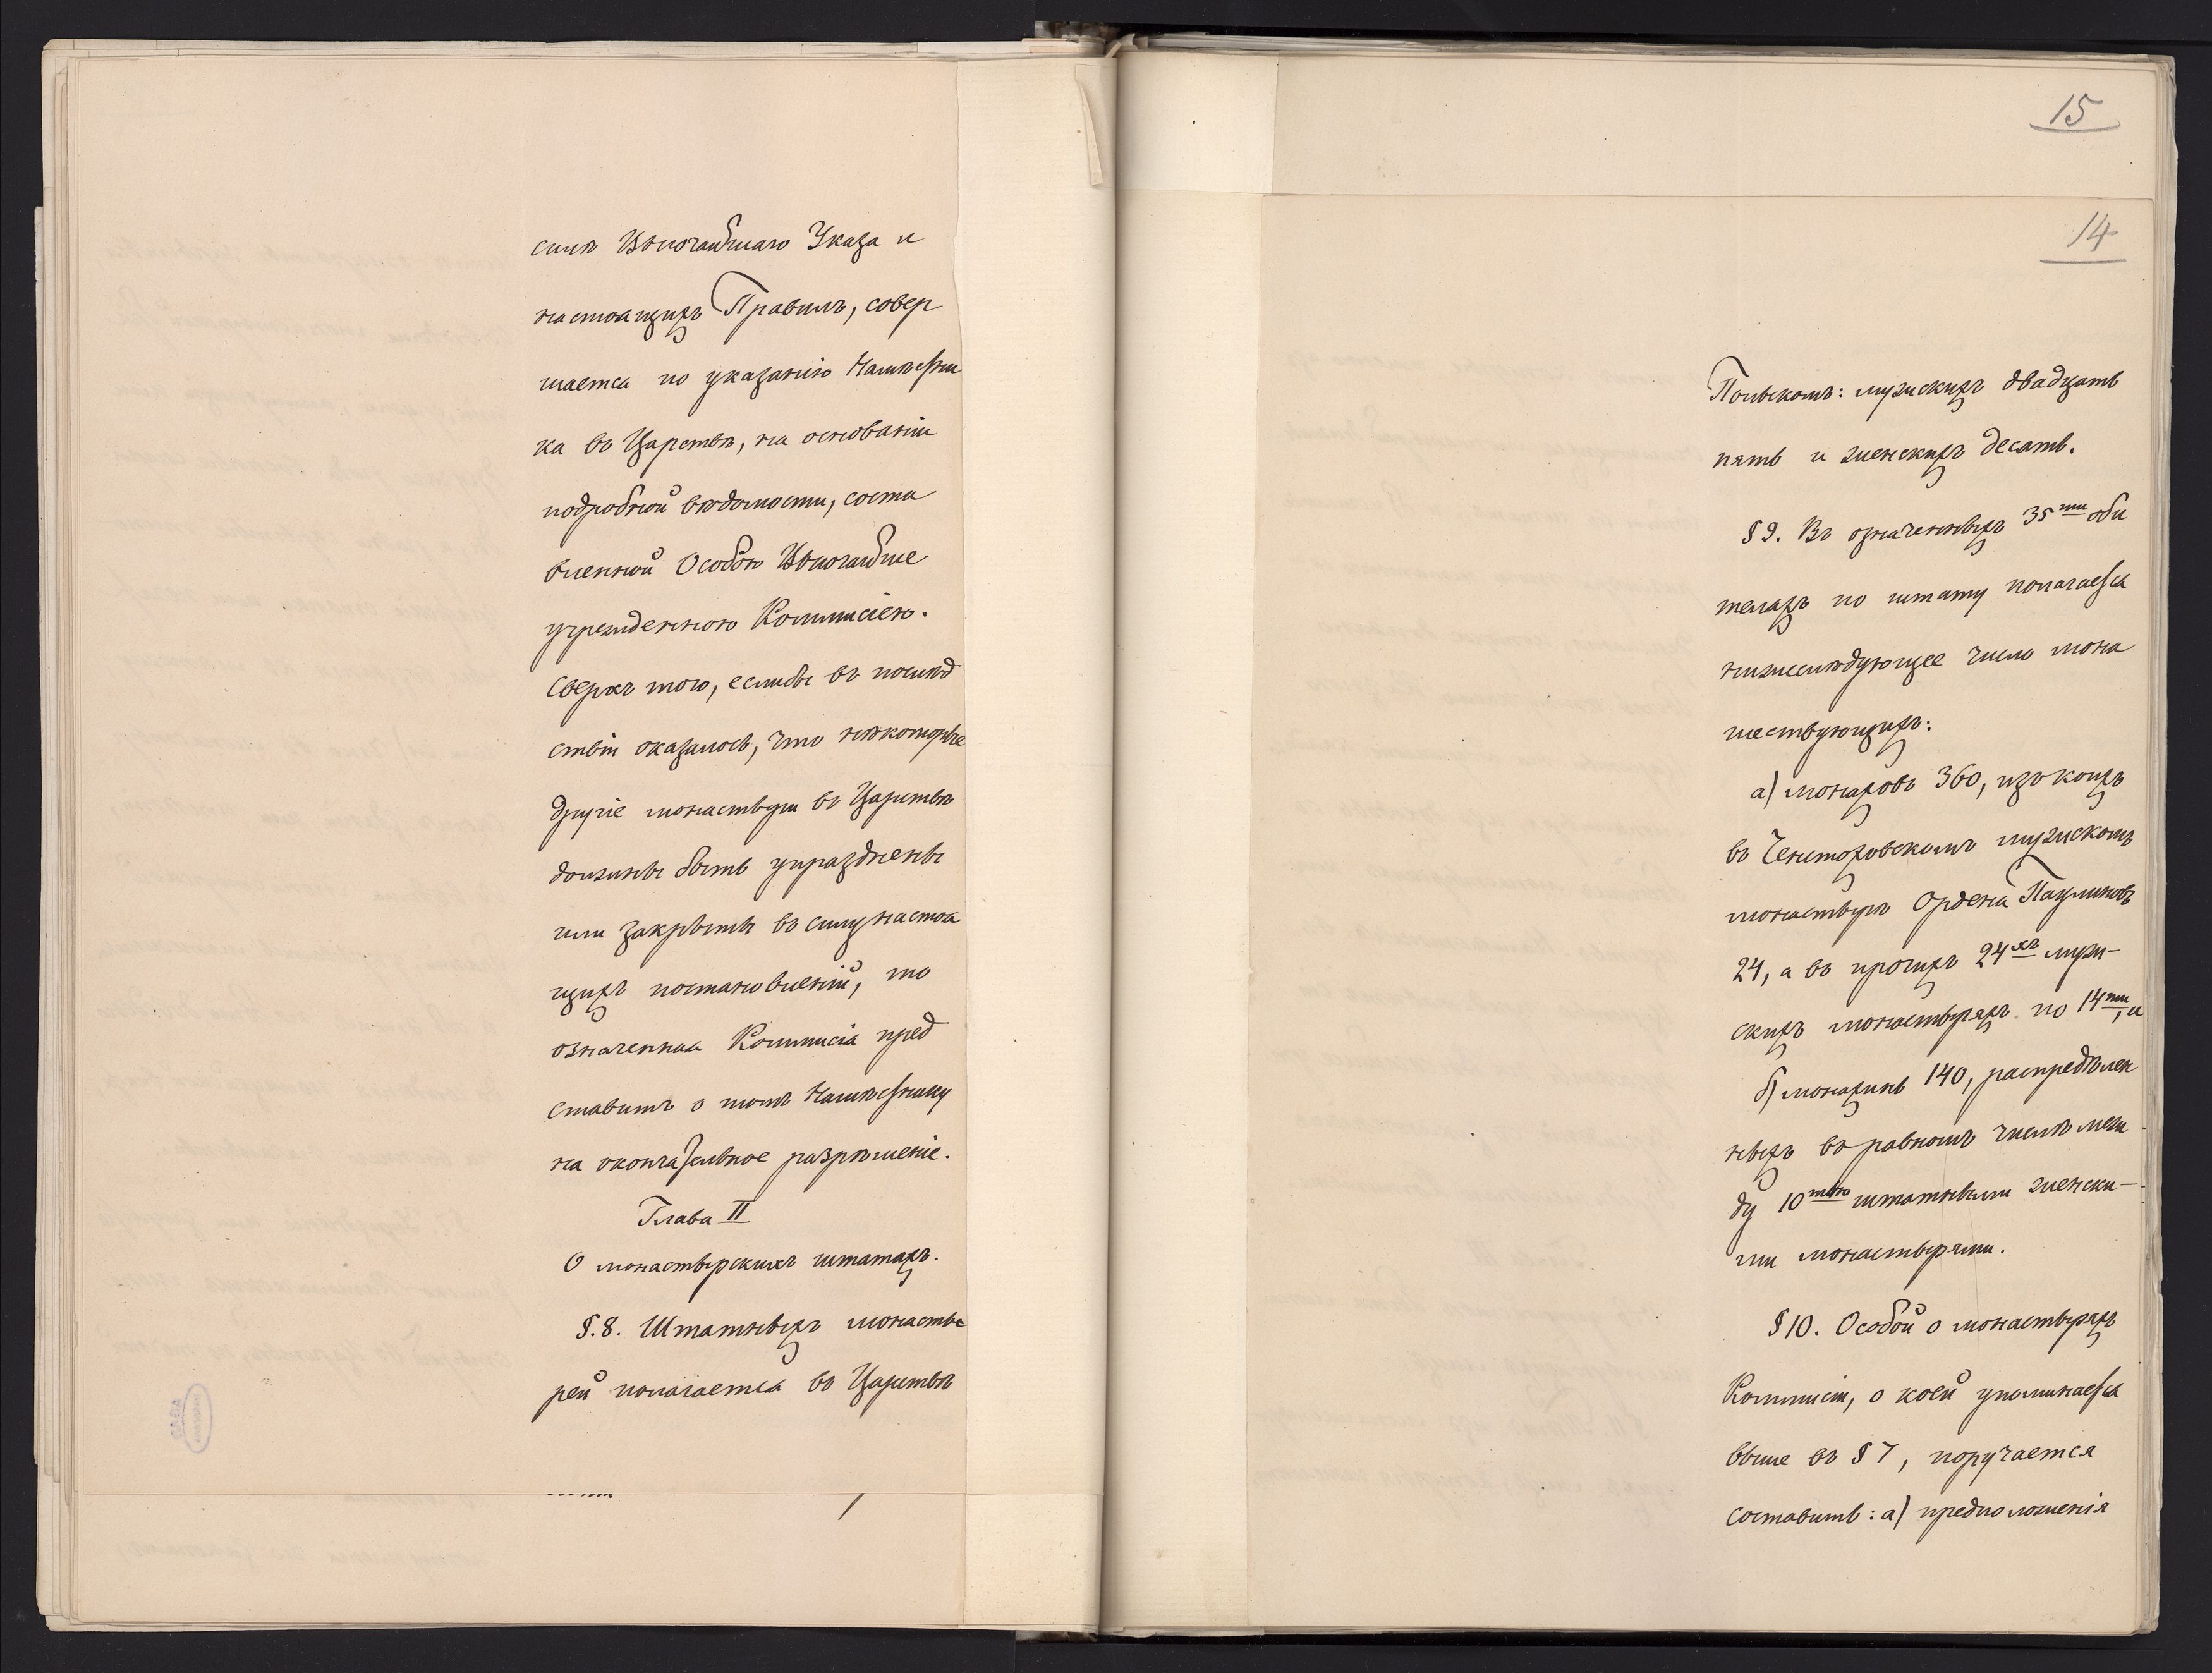 силѣ Высочайшаго Указа и
настоящихъ Правилъ, совер
шается по указанію Намѣстни
ка въ Царствѣ, на основаніи
подробной вѣдомости, соста
вленной Особою Высочайше
учрежденною Коммисіею.
Сверхъ того, еслибы въ послѣд
ствіи оказалось, что нѣкоторые
другіе монастыри въ Царствѣ
должны быть упразднены
или закрыты въ силу настоя
щихъ постановленій, то
означенная Коммисія пред
ставитъ о томъ Намѣстнику
на окончательное разрѣшеніе.
Глава II
О монастырскихъ штатахъ.
§.8. Штатныхъ монасты
рей полагается въ Царствѣ
15
14
Польскомъ: мужскихъ двадцать
пять и женскихъ десять.
§9. Въ означенныхъ 35ти оби
теляхъ по штату полагается
нижеслѣдующее число мона
шествующихъ:
а) монаховъ 360, изъ коихъ
въ Ченстоховскомъ мужскомъ
монастырѣ Ордена Паулиновъ
24, а въ прочихъ 24хъ муж-
скихъ монастыряхъ по 14ти, и
б) монахинь 140, распредѣлен
ныхъ въ равномъ числѣ меж
ду 10тью штатными женски-
ми монастырями.
§10. Особой о монастыряхъ
Коммисіи, о коей упоминается
выше въ §7, поручается
составить: а) предположенія